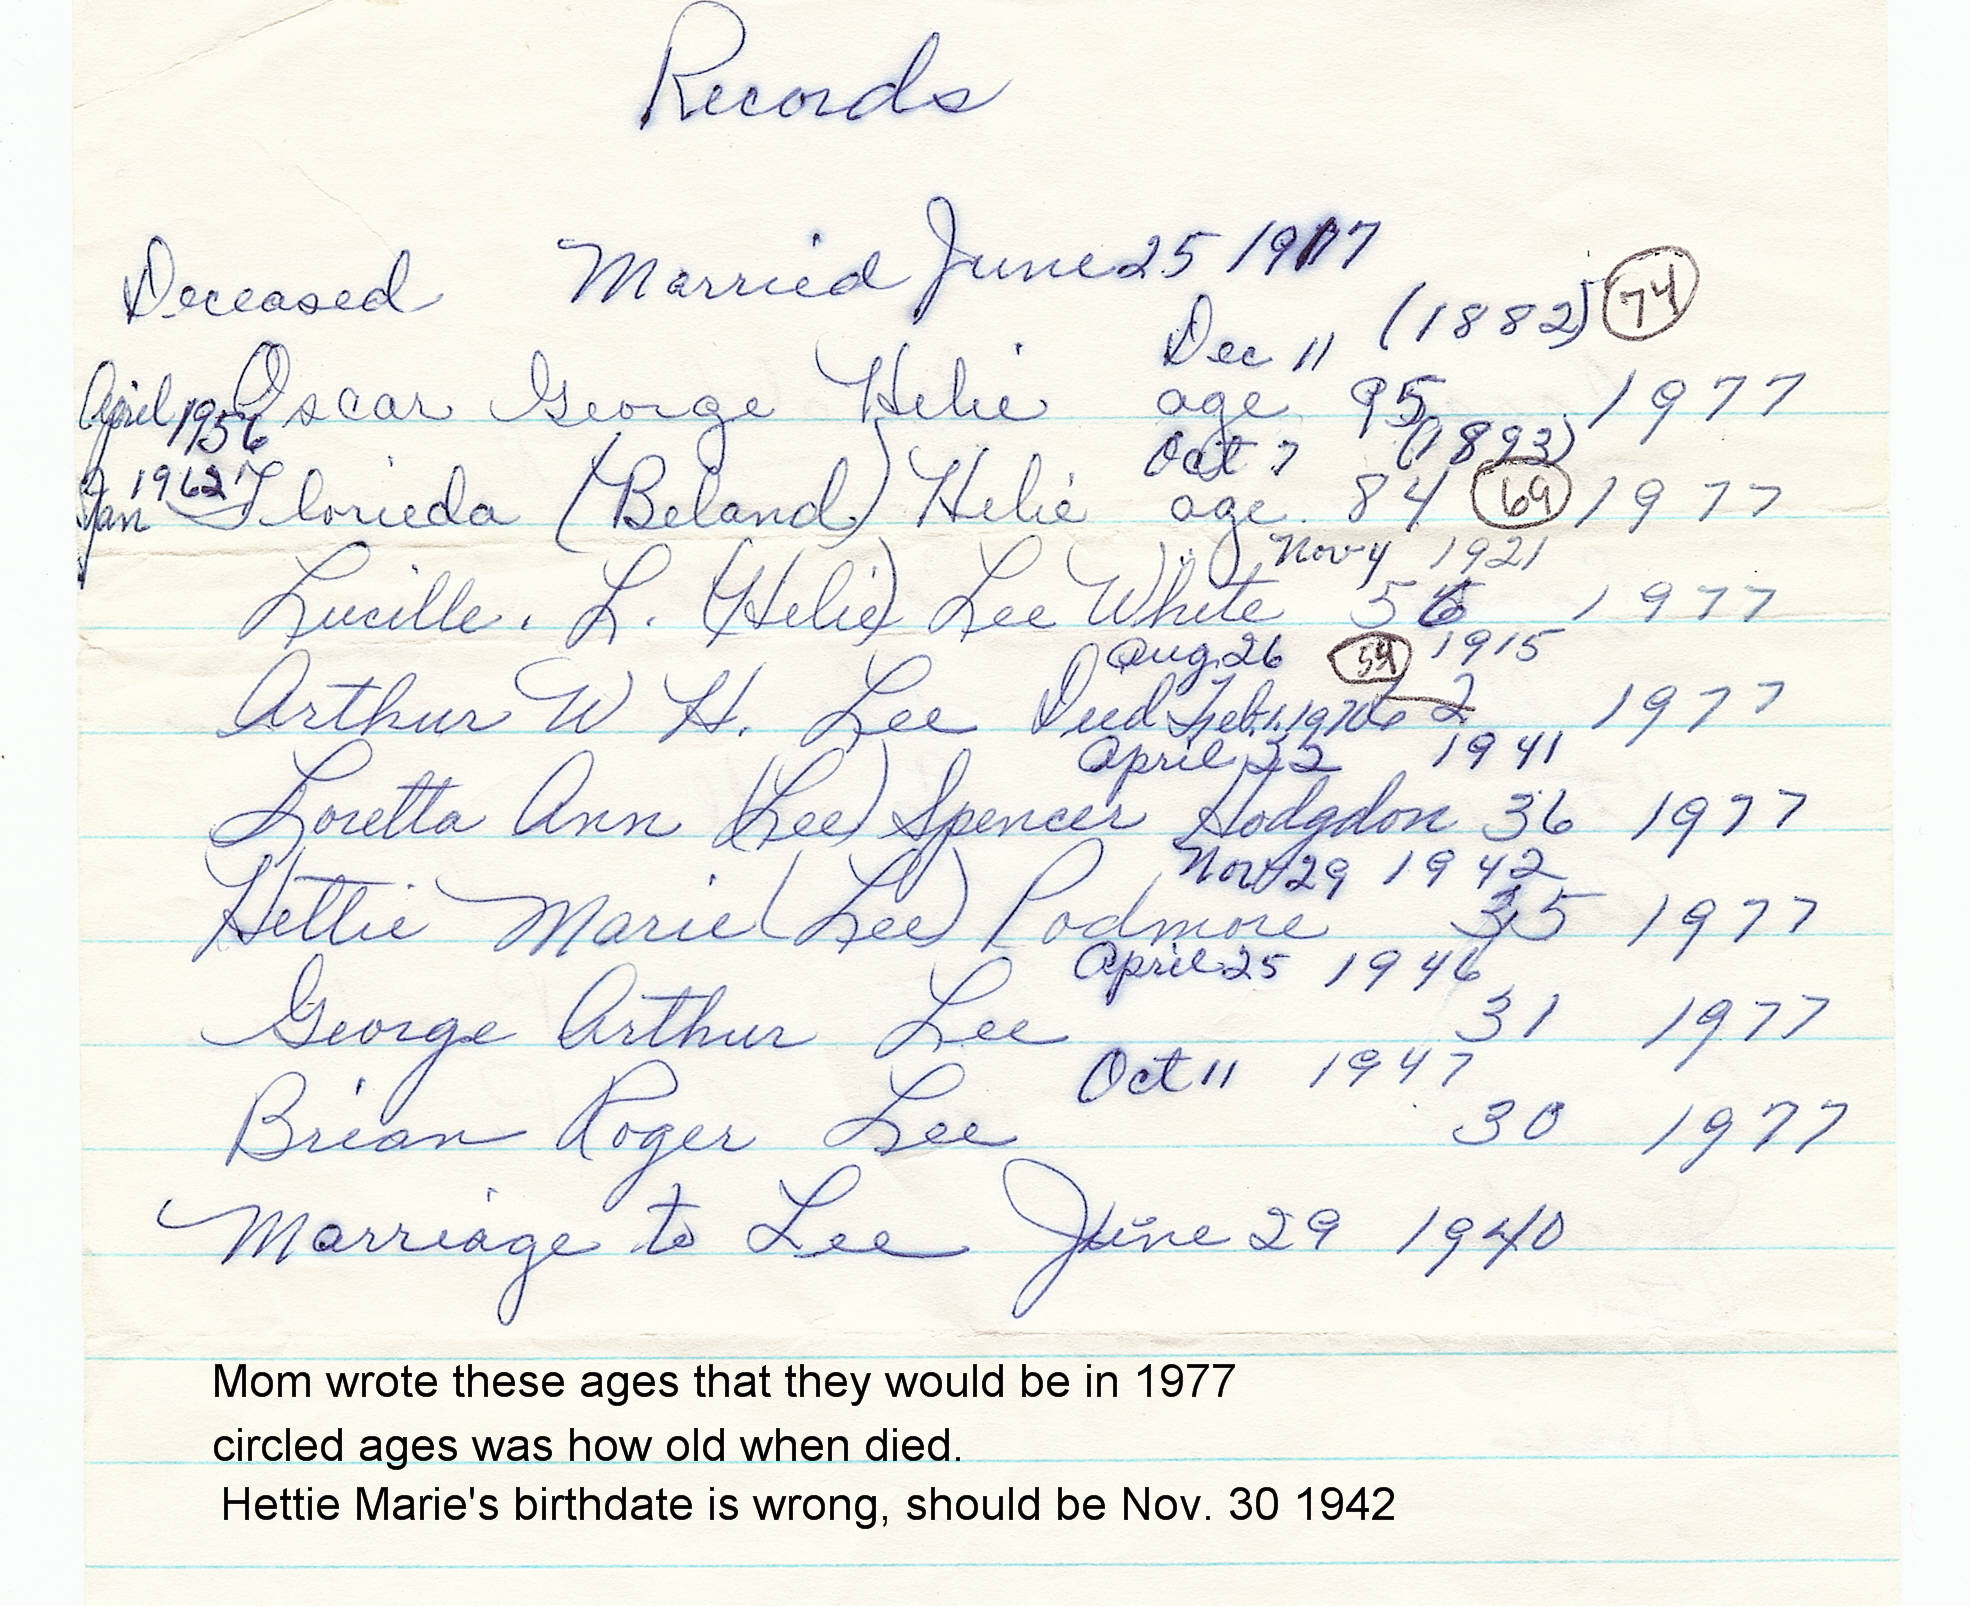 Records
Deceased Married June 25 1917
Dec 11 (1882) 74
April 1956 Oscar George Helie age 95 1977
Oct 7 (1893)
Jan 1962 Florieda (Beland) Helie age 84 69 1977
Nov 4 1921
Lucille. L. (Helie) Lee White 56 1977
Aug 26 54 1915
Arthur W H. Lee Died Feb. 1. 1970 62 1977
April 22 1941
Loretta Ann (Lee) Spencer Hodgdon 36 1977
Nov 29 1942
Hettie Marie (Lee) Podmore 35 1977
April 25 1946
George Arthur Lee 31 1977
Oct 11 1947
Brian Roger Lee 30 1977
Marriage to Lee June 29 1940
Mom wrote these ages that they would be in 1977
circled ages was how old when died.
Hettie Marie's birthdate is wrong, should be Nov. 30 1942